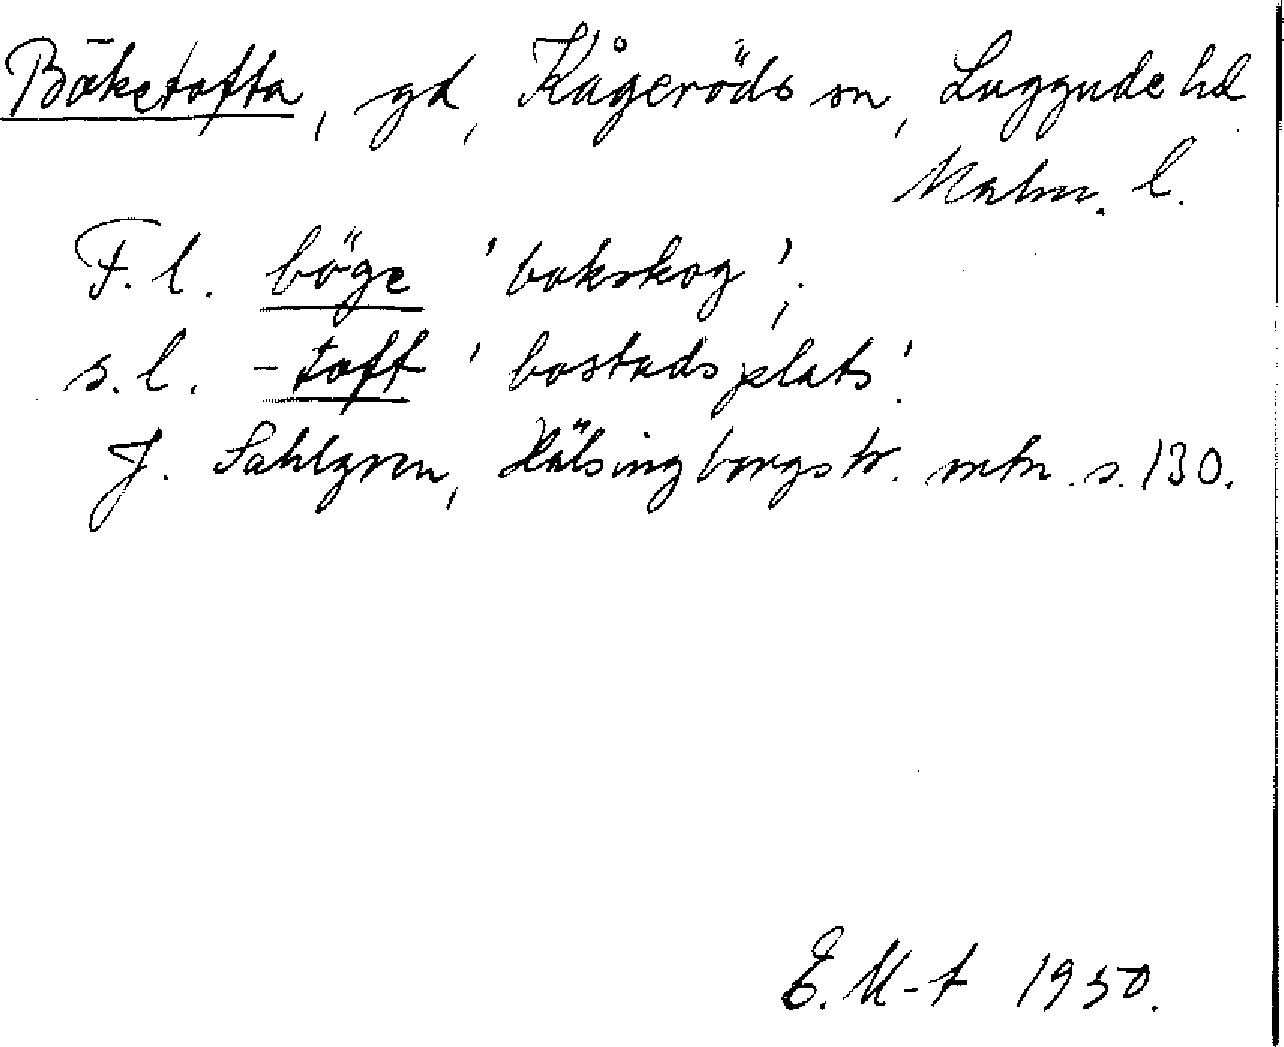 Böketofta, gd, Kågeröds sn, Luggude hd
Malm. l.
F. l. böge 'bokskog';
s. l. -toft 'bostadsplats'.
J. Sahlgren, Hälsingborgstr. mtn. s. 130.
E. M-t 1950.